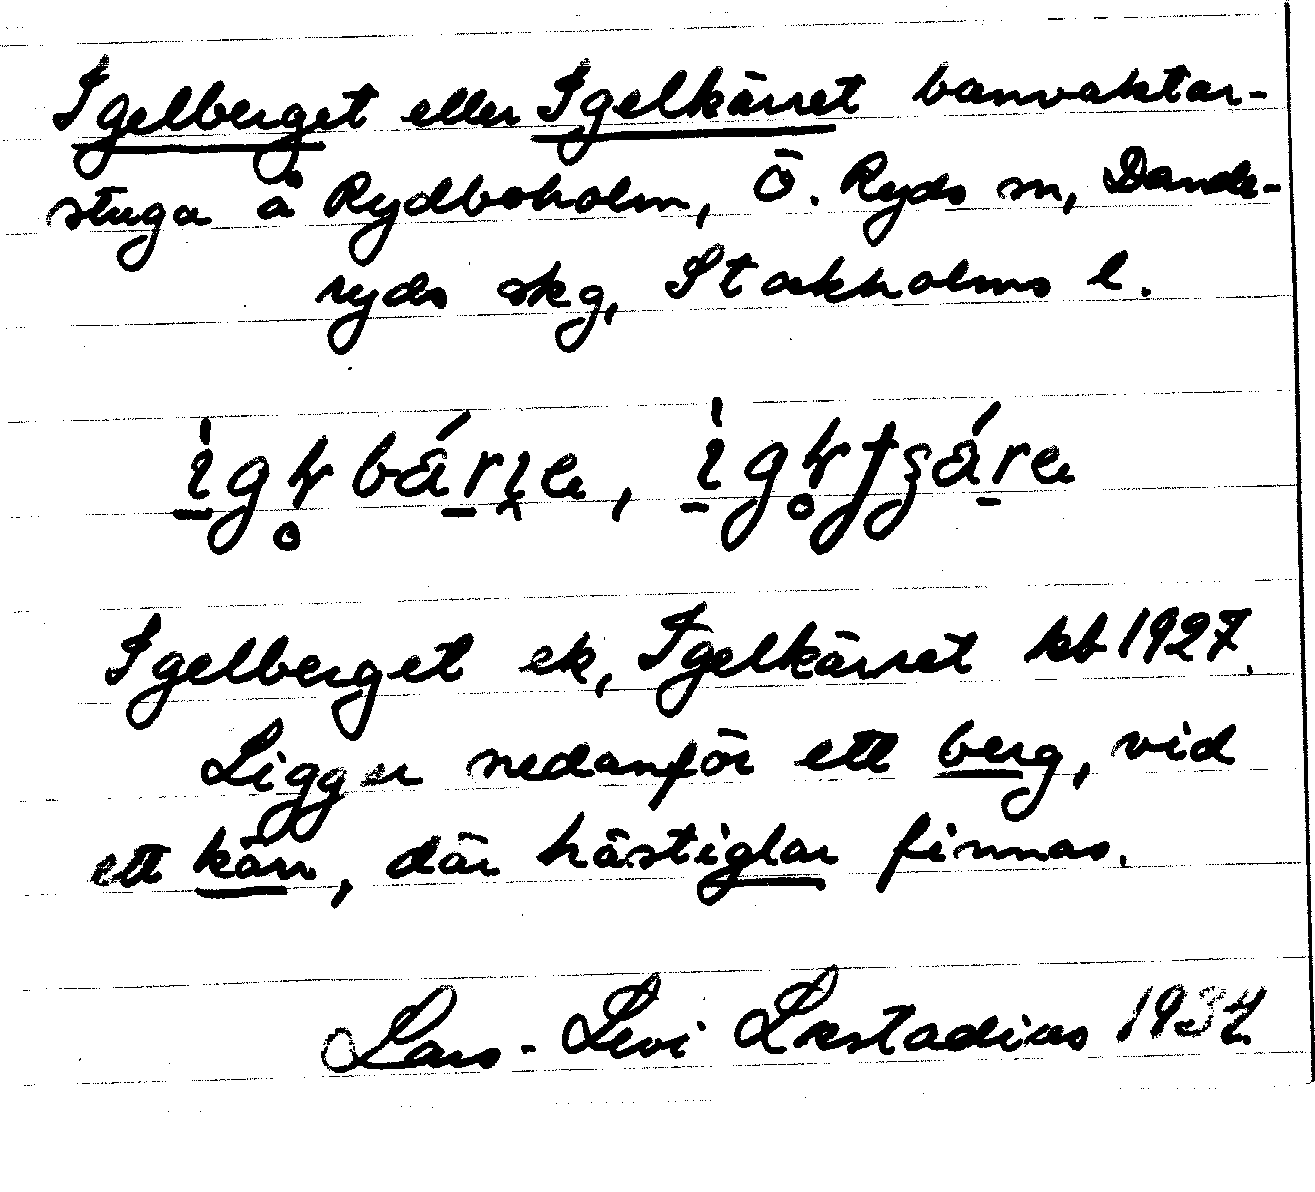 Igelberget eller Igelkärret banvaktar-
stuga å Rydboholm, Ö. Ryds sn, Dande-
ryds skg, Stockholms l.
Igelberget ek, Igelkärret kb 1927.
Ligger nedanför ett berg, vid
ett kärr, där hästiglar finnas.
Lars-Levi Læstadius 1934